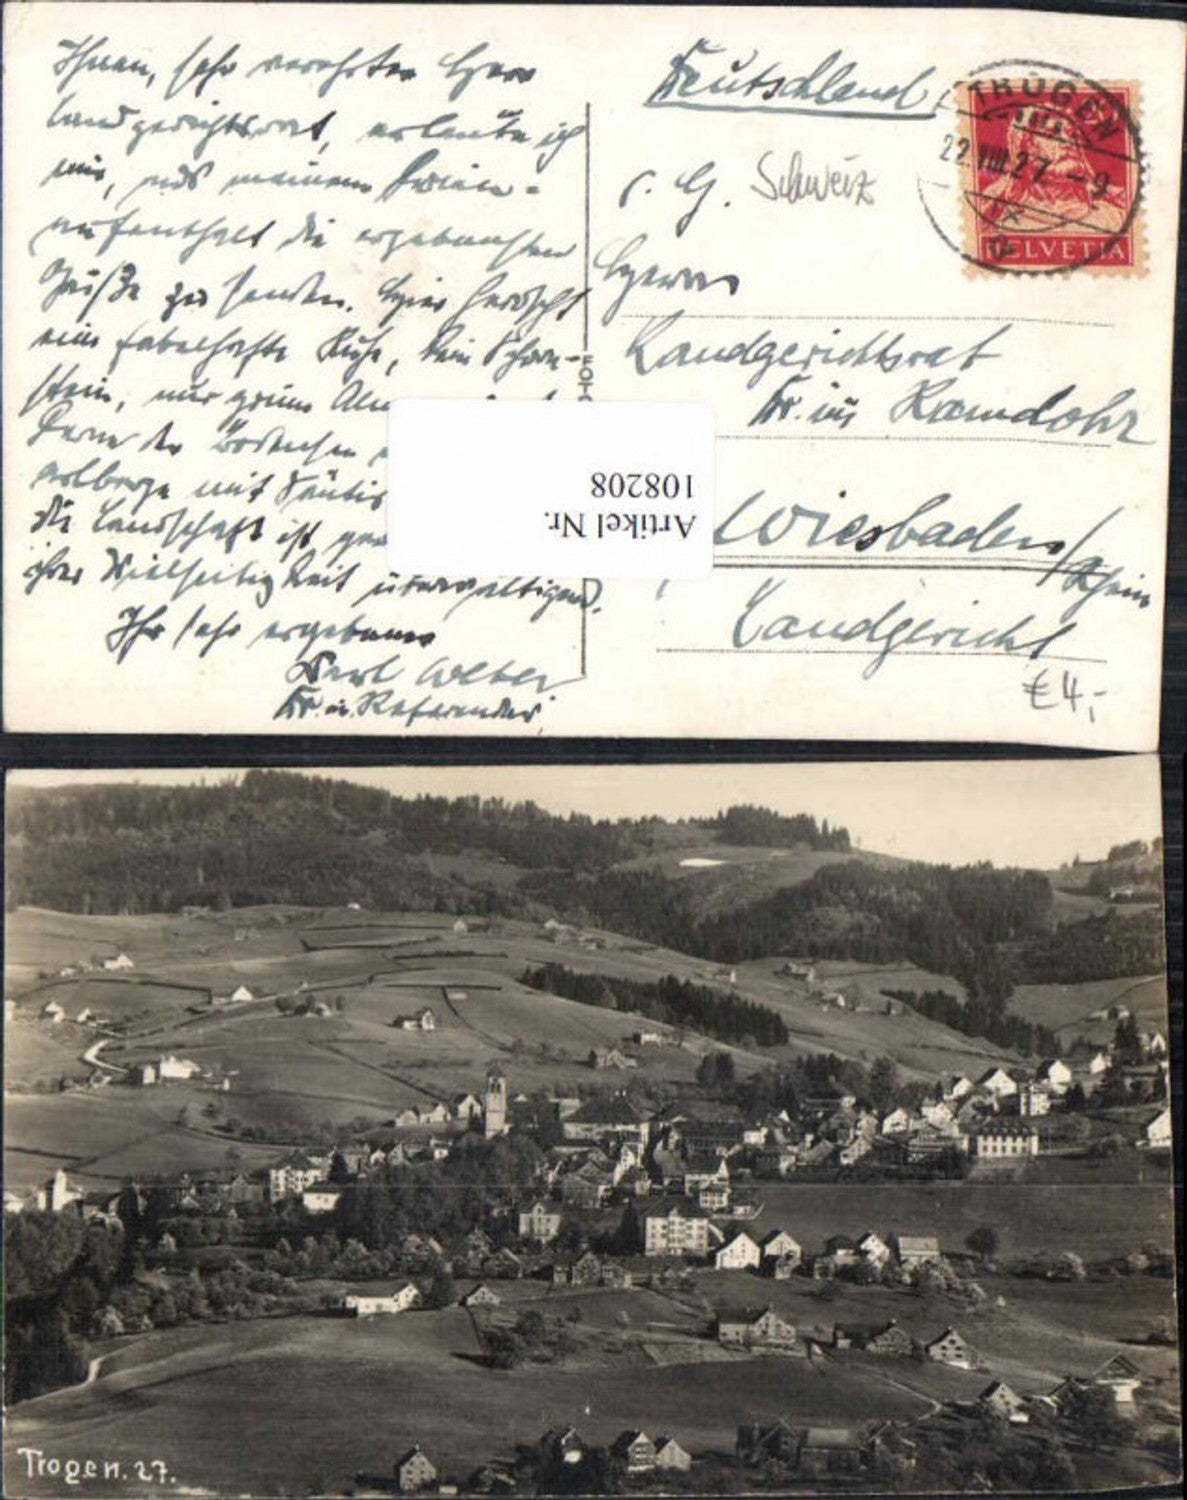 Ihnen, sehr verehrter Herr
Landgerichtsrat, erlaube ich
mir, aus meinem Ferien-
aufenthalt die ergebensten
Grüße zu senden. Hier herrscht
eine fabelhafte Ruhe, kein Schorn-
stein, nur grüne
Ferne der Bodensee
mit Säntis
die Landschaft ist
ihrer Vielseitigkeit überwältigend.
Ihr sehr ergebener
Karl Weber
Dr. u. Referendar
Deutschland
TROGEN
22.VIII.27.-9
HELVETIA
Schweiz
s. H.
Herrn
Landgerichtsrat
Dr. Ramdohr
Wiesbaden/Rhein
Landgericht
€ 4,-
FOTO
Artikel Nr.
108208
Trogen. 27.